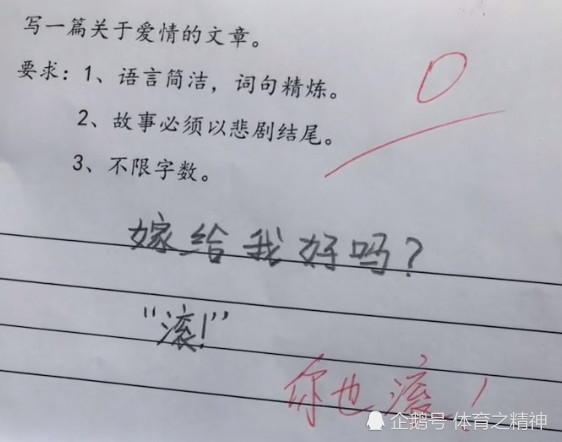 写一篇关于爱情的文章。
要求：1、语言简洁，词句精炼。
0
2、故事必须以悲剧结尾。
3、不限字数。
嫁给我好吗？
“滚!”
你也滚！
企鹅号 体育之精神